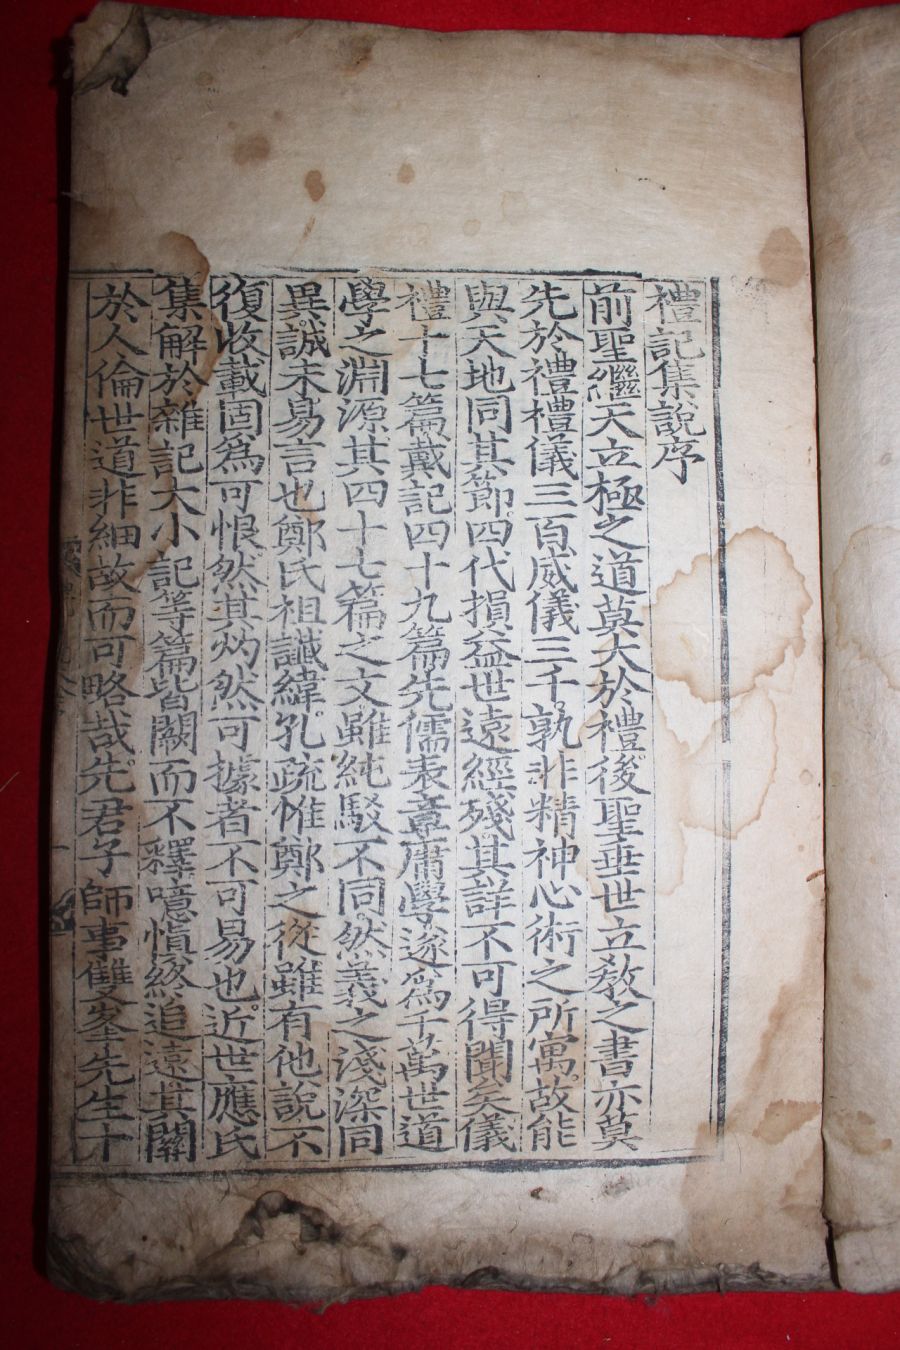 禮記集說序
前聖繼天立極之道莫大於禮後聖垂世立敎之書亦莫
先於禮禮儀三百威儀三千孰非精神心術之所寓故能
與天地同其節四代損益世遠經殘其詳不可得聞矣儀
禮十七篇戴記四十九篇先儒表章庸學遂爲千萬世道
學之淵源其四十七篇之文雖純駁不同然義之淺深同
異誠未易言也鄭氏祖讖緯孔疏惟鄭之從雖有他說不
復收載固爲可恨然其灼然可據者不可易也近世應氏
集解於雜記大小記等篇皆闕而不釋噫愼終追遠其關
於人倫世道非細故而可略哉先君子師事雙峯先生十